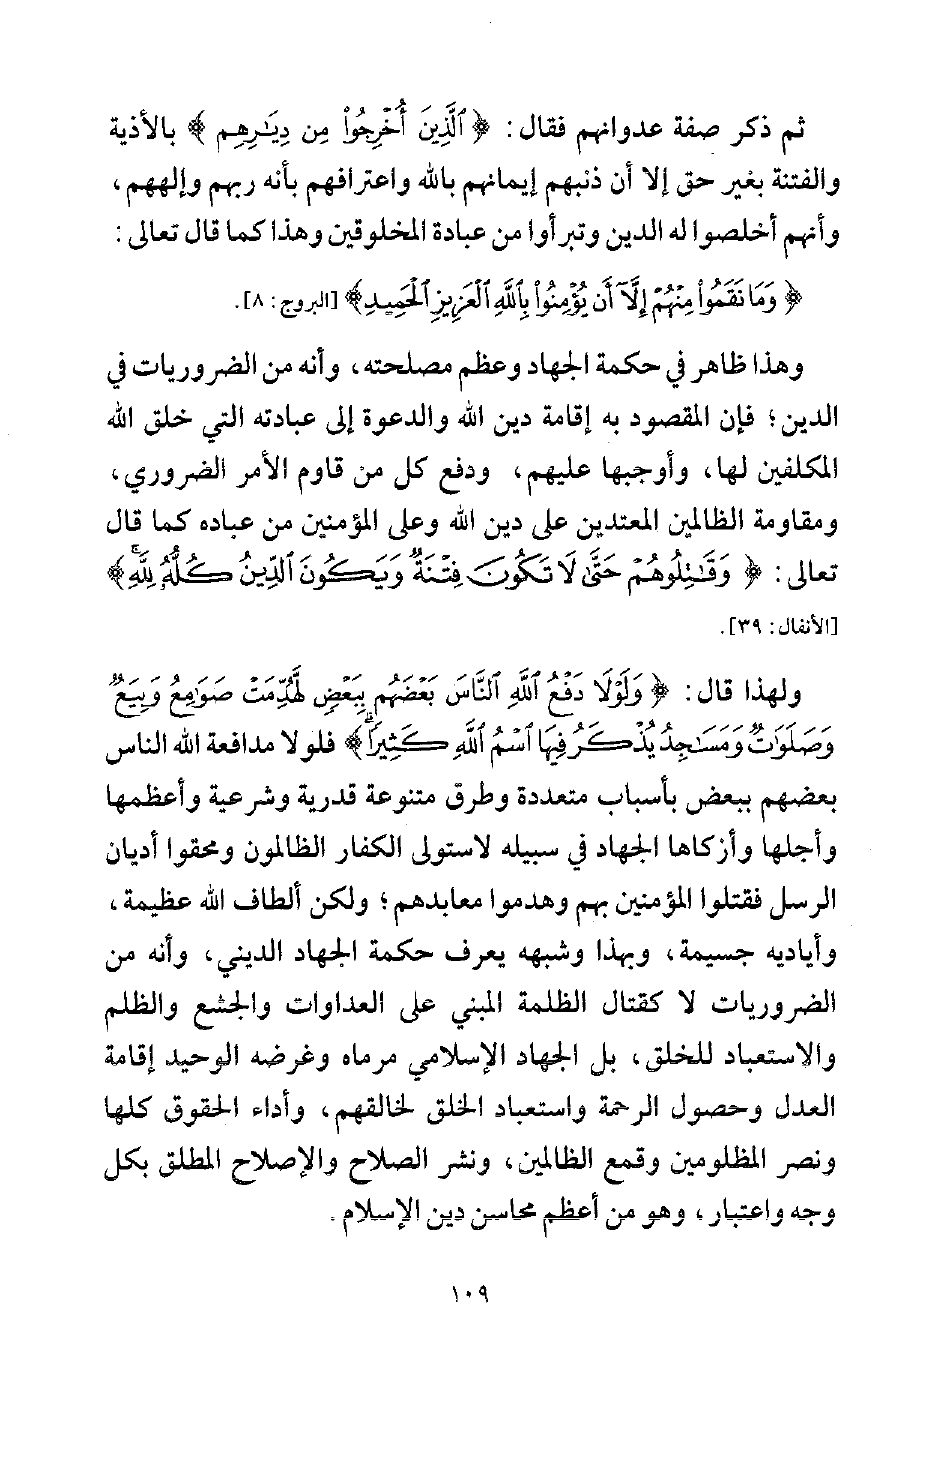 ثم ذكر صفة عدوانهم فقال: ﴿ ٱلَّذِينَ أُخْرِجُوا۟ مِن دِيَـٰرِهِم ﴾ بالأذية
والفتنة بغير حق إلا أن ذنبهم إيمانهم بالله واعترافهم بأنه ربهم وإلههم،
وأنهم أخلصوا له الدين وتبرأوا من عبادة المخلوقين وهذا كما قال تعالى:
﴿ وَمَا نَقَمُوا۟ مِنْهُمْ إِلَّآ أَن يُؤْمِنُوا۟ بِٱللَّهِ ٱلْعَزِيزِ ٱلْحَمِيدِ ﴾ [البروج: ٨].
وهذا ظاهر في حكمة الجهاد وعظم مصلحته، وأنه من الضروريات في
الدين؛ فإن المقصود به إقامة دين الله والدعوة إلى عبادته التي خلق الله
المكلفين لها، وأوجبها عليهم، ودفع كل من قاوم الأمر الضروري،
ومقاومة الظالمين المعتدين على دين الله وعلى المؤمنين من عباده كما قال
تعالى: ﴿ وَقَـٰتِلُوهُمْ حَتَّىٰ لَا تَكُونَ فِتْنَةٌ وَيَكُونَ ٱلدِّينُ كُلُّهُۥ لِلَّهِ ۚ ﴾
[الأنفال: ٣٩].
ولهذا قال: ﴿ وَلَوْلَا دَفْعُ ٱللَّهِ ٱلنَّاسَ بَعْضَهُم بِبَعْضٍ لَّهُدِّمَتْ صَوَٰمِعُ وَبِيَعٌ
وَصَلَوَٰتٌ وَمَسَـٰجِدُ يُذْكَرُ فِيهَا ٱسْمُ ٱللَّهِ كَثِيرًا ۗ ﴾ فلولا مدافعة الله الناس
بعضهم ببعض بأسباب متعددة وطرق متنوعة قدرية وشرعية وأعظمها
وأجلها وأزكاها الجهاد في سبيله لاستولى الكفار الظالمون ومحقوا أديان
الرسل فقتلوا المؤمنين بهم وهدموا معابدهم؛ ولكن ألطاف الله عظيمة،
وأياديه جسيمة، وبهذا وشبهه يعرف حكمة الجهاد الديني، وأنه من
الضروريات لا كقتال الظلمة المبني على العداوات والجشع والظلم
والاستعباد للخلق، بل الجهاد الإسلامي مرماه وغرضه الوحيد إقامة
العدل وحصول الرحمة واستعباد الخلق لخالقهم، وأداء الحقوق كلها
ونصر المظلومين وقمع الظالمين، ونشر الصلاح والإصلاح المطلق بكل
وجه واعتبار، وهو من أعظم محاسن دين الإسلام.
١٠٩